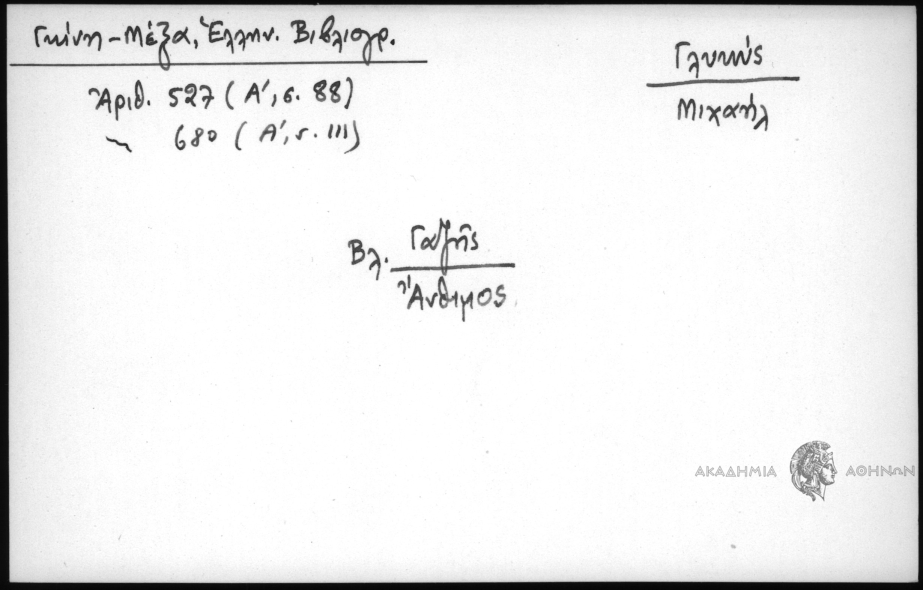 Γκίνη - Μέξα, Ἑλλην. Βιβλιογρ.
Ἀριθ. 527 (Α', σ. 88)
〃 680 (Α', σ. 111)
Γλυκύς
Μιχαήλ
Βλ. Γαζῆς
Ἄνθιμος
ΑΚΑΔΗΜΙΑ ΑΘΗΝΩΝ